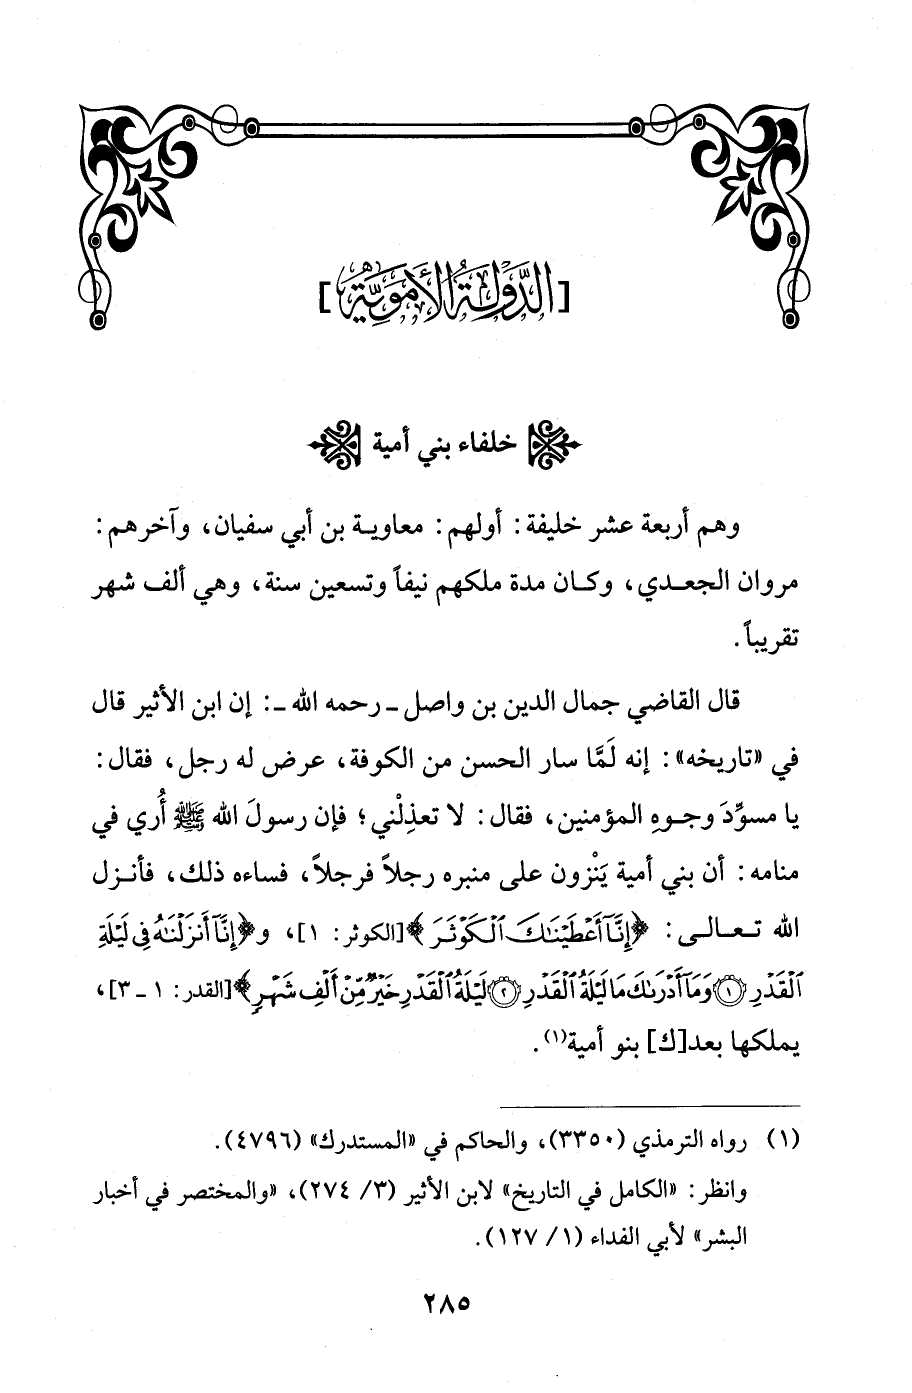 [الدَّوْلَةُ الأُمَوِيَّةُ]
خلفاء بني أمية
وهم أربعة عشر خليفة: أولهم: معاويـة بن أبي سفيان، وآخرهم:
مروان الجعـدي، وكـان مدة ملكهم نيفاً وتسعين سنة، وهي ألف شهر
تقريباً.
قال القاضي جمال الدين بن واصل ـ رحمه الله ـ: إن ابن الأثير قال
في «تاريخه»: إنه لَمَّا سار الحسن من الكوفة، عرض له رجل، فقال:
يا مسوِّدَ وجـوهِ المؤمنين، فقال: لا تعذِلْني؛ فإن رسولَ الله ﷺ أُري في
منامه: أن بني أمية يَنْزون على منبره رجلاً فرجلاً، فساءه ذلك، فأنـزل
الله تـعـالـى: ﴿إِنَّآ أَعْطَيْنَٰكَ ٱلْكَوْثَرَ﴾ [الكوثر: ١]، و﴿إِنَّآ أَنزَلْنَٰهُ فِى لَيْلَةِ
ٱلْقَدْرِ ۝١ وَمَآ أَدْرَىٰكَ مَا لَيْلَةُ ٱلْقَدْرِ ۝٢ لَيْلَةُ ٱلْقَدْرِ خَيْرٌ مِّنْ أَلْفِ شَهْرٍ﴾ [القدر: ١ ـ ٣]،
يملكها بعد[ك] بنو أمية(١).
(١) رواه الترمذي (٣٣٥٠)، والحاكم في «المستدرك» (٤٧٩٦).
وانظر: «الكامل في التاريخ» لابن الأثير (٣/ ٢٧٤)، «والمختصر في أخبار
البشر» لأبي الفداء (١/ ١٢٧).
٢٨٥